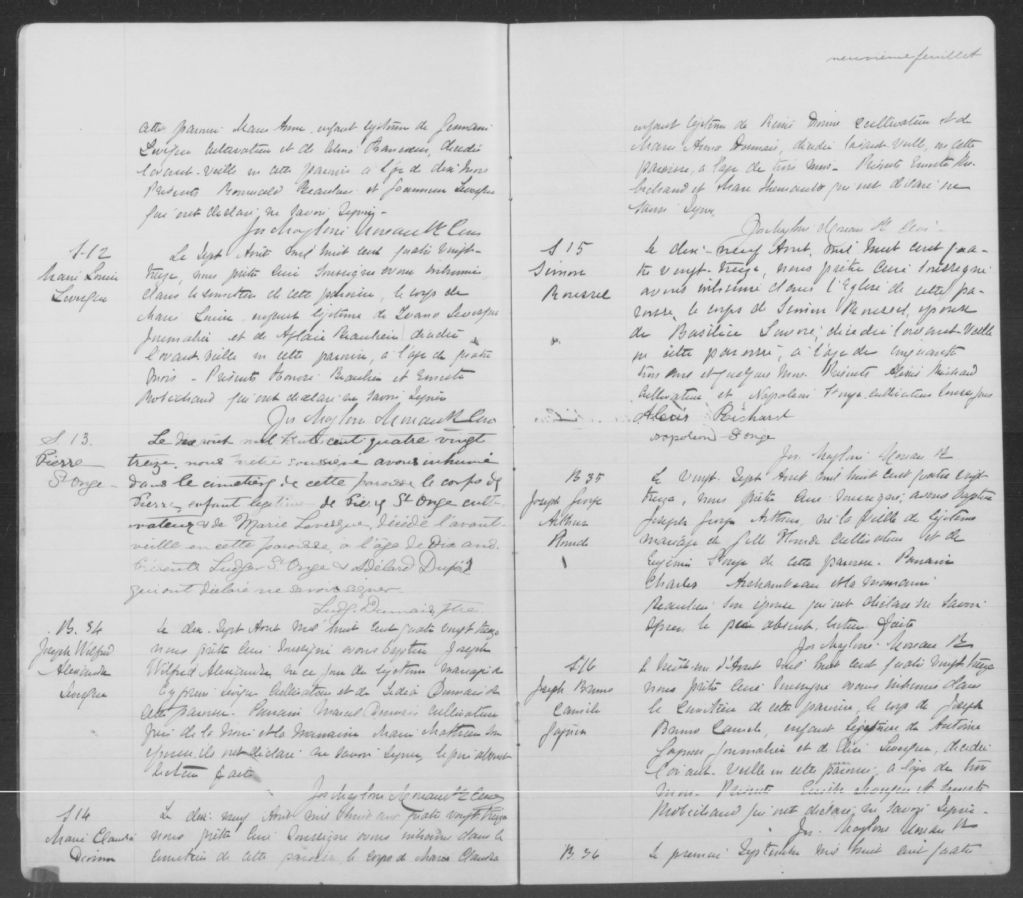 cette paroisse Marie Anne, enfant légitime de
Levesque cultivateur et de décédée
l'avant-veille en cette paroisse à l'âge de dix mois
Présents Romuald Beaulieu et Levesque
qui ont déclaré ne savoir signer-
Moreau Ptre Curé
S-12
Marie Louise
Levesque
Le sept Août mil huit cent quatre vingt-
treize, nous prêtre curé soussigné avons inhumé
dans le cimetière de cette paroisse, le corps de
Marie Louise, enfant légitime de Levesque
Journalier et de Beaulieu décédée
l'avant veille en cette paroisse, à l'âge de quatre
mois - Présents Honoré Beaulieu et Ernest
Robichaud qui ont déclaré ne savoir signer
Moreau Ptre Curé
S. 13.
Pierre
St Onge
Le dix août mil huit cent quatre vingt
treize, nous Prêtre soussigné avons inhumé
dans le cimetière de cette paroisse le corps de
Pierre, enfant légitime de Pierre St Onge culti-
vateur & de Marie Levesque, décédé l'avant-
veille en cette paroisse, à l'âge de Dix ans.
Présents Ludger St Onge &
qui ont déclaré ne savoir signer
Dumais Ptre
B. 34
Joseph Wilfred
Alexandre
Levesque
Le dix-sept Août mil huit cent quatre vingt treize
nous prêtre curé soussigné avons baptisé Joseph
Wilfred Alexandre, né ce jour du légitime mariage de
Cyprien Levesque cultivateur et de Lidia Dumais de
cette paroisse. Parrain Marcel Dumais cultivateur
et la marraine Marie son
épouse, ils ont déclaré ne savoir signer, le père absent
lecture faite
Moreau Ptre Curé
S 14
Marie Claudia
Dionne
Le dix-neuf Août mil huit cent quatre vingt treize
nous prêtre curé soussigné avons inhumé dans le
cimetière de cette paroisse le corps de Marie Claudia
neuvième feuillet
enfant légitime de Rémi Dionne cultivateur et de
Marie Dumais, décédée l'avant veille, en cette
paroisse, à l'âge de trois mois- Présents Ernest Ro-
bichaud et qui ont déclaré ne
savoir signer
Moreau Ptre Curé
S 15
Simon
Roussel
Le dix-neuf Août, mil huit cent qua-
tre vingt-treize, nous prêtre curé soussigné
avons inhumé dans l'Eglise de cette pa-
roisse, le corps de Simon Roussel, époux
de Basilice décédé l'avant veille
en cette paroisse, à l'âge de cinquante
trois ans et quelques mois. Présents Alexis Richard
cultivateur et Napoléon cultivateur
Alexis Richard
napoleon
Moreau Ptre
B 35
Joseph George
Arthur
Le vingt-sept Août mil huit cent quatre vingt
treize, nous prêtre curé soussigné, avons baptisé
Joseph George Arthur, né la veille du légitime
mariage de cultivateur et de
Eugénie de cette paroisse- Parrain
Charles Archambeau et la marraine
Beaulieu son épouse qui ont déclaré ne savoir
signer le père absent. lecture faite
Moreau Ptre
S16
Joseph Bruno
Camille
Le d'Août mil huit cent quatre vingt treize
nous prêtre curé soussigné avons inhumé dans
le cimetière de cette paroisse, le corps de Joseph
Bruno Camille, enfant légitime de Antoine
Journalier et de Levesque, décédé
l'avant-veille en cette paroisse, à l'âge de trois
mois- Présents et Ernest
Robichaud qui ont déclaré ne savoir signer-
Moreau Ptre
B. 36
Le premier Septembre mil huit cent quatre